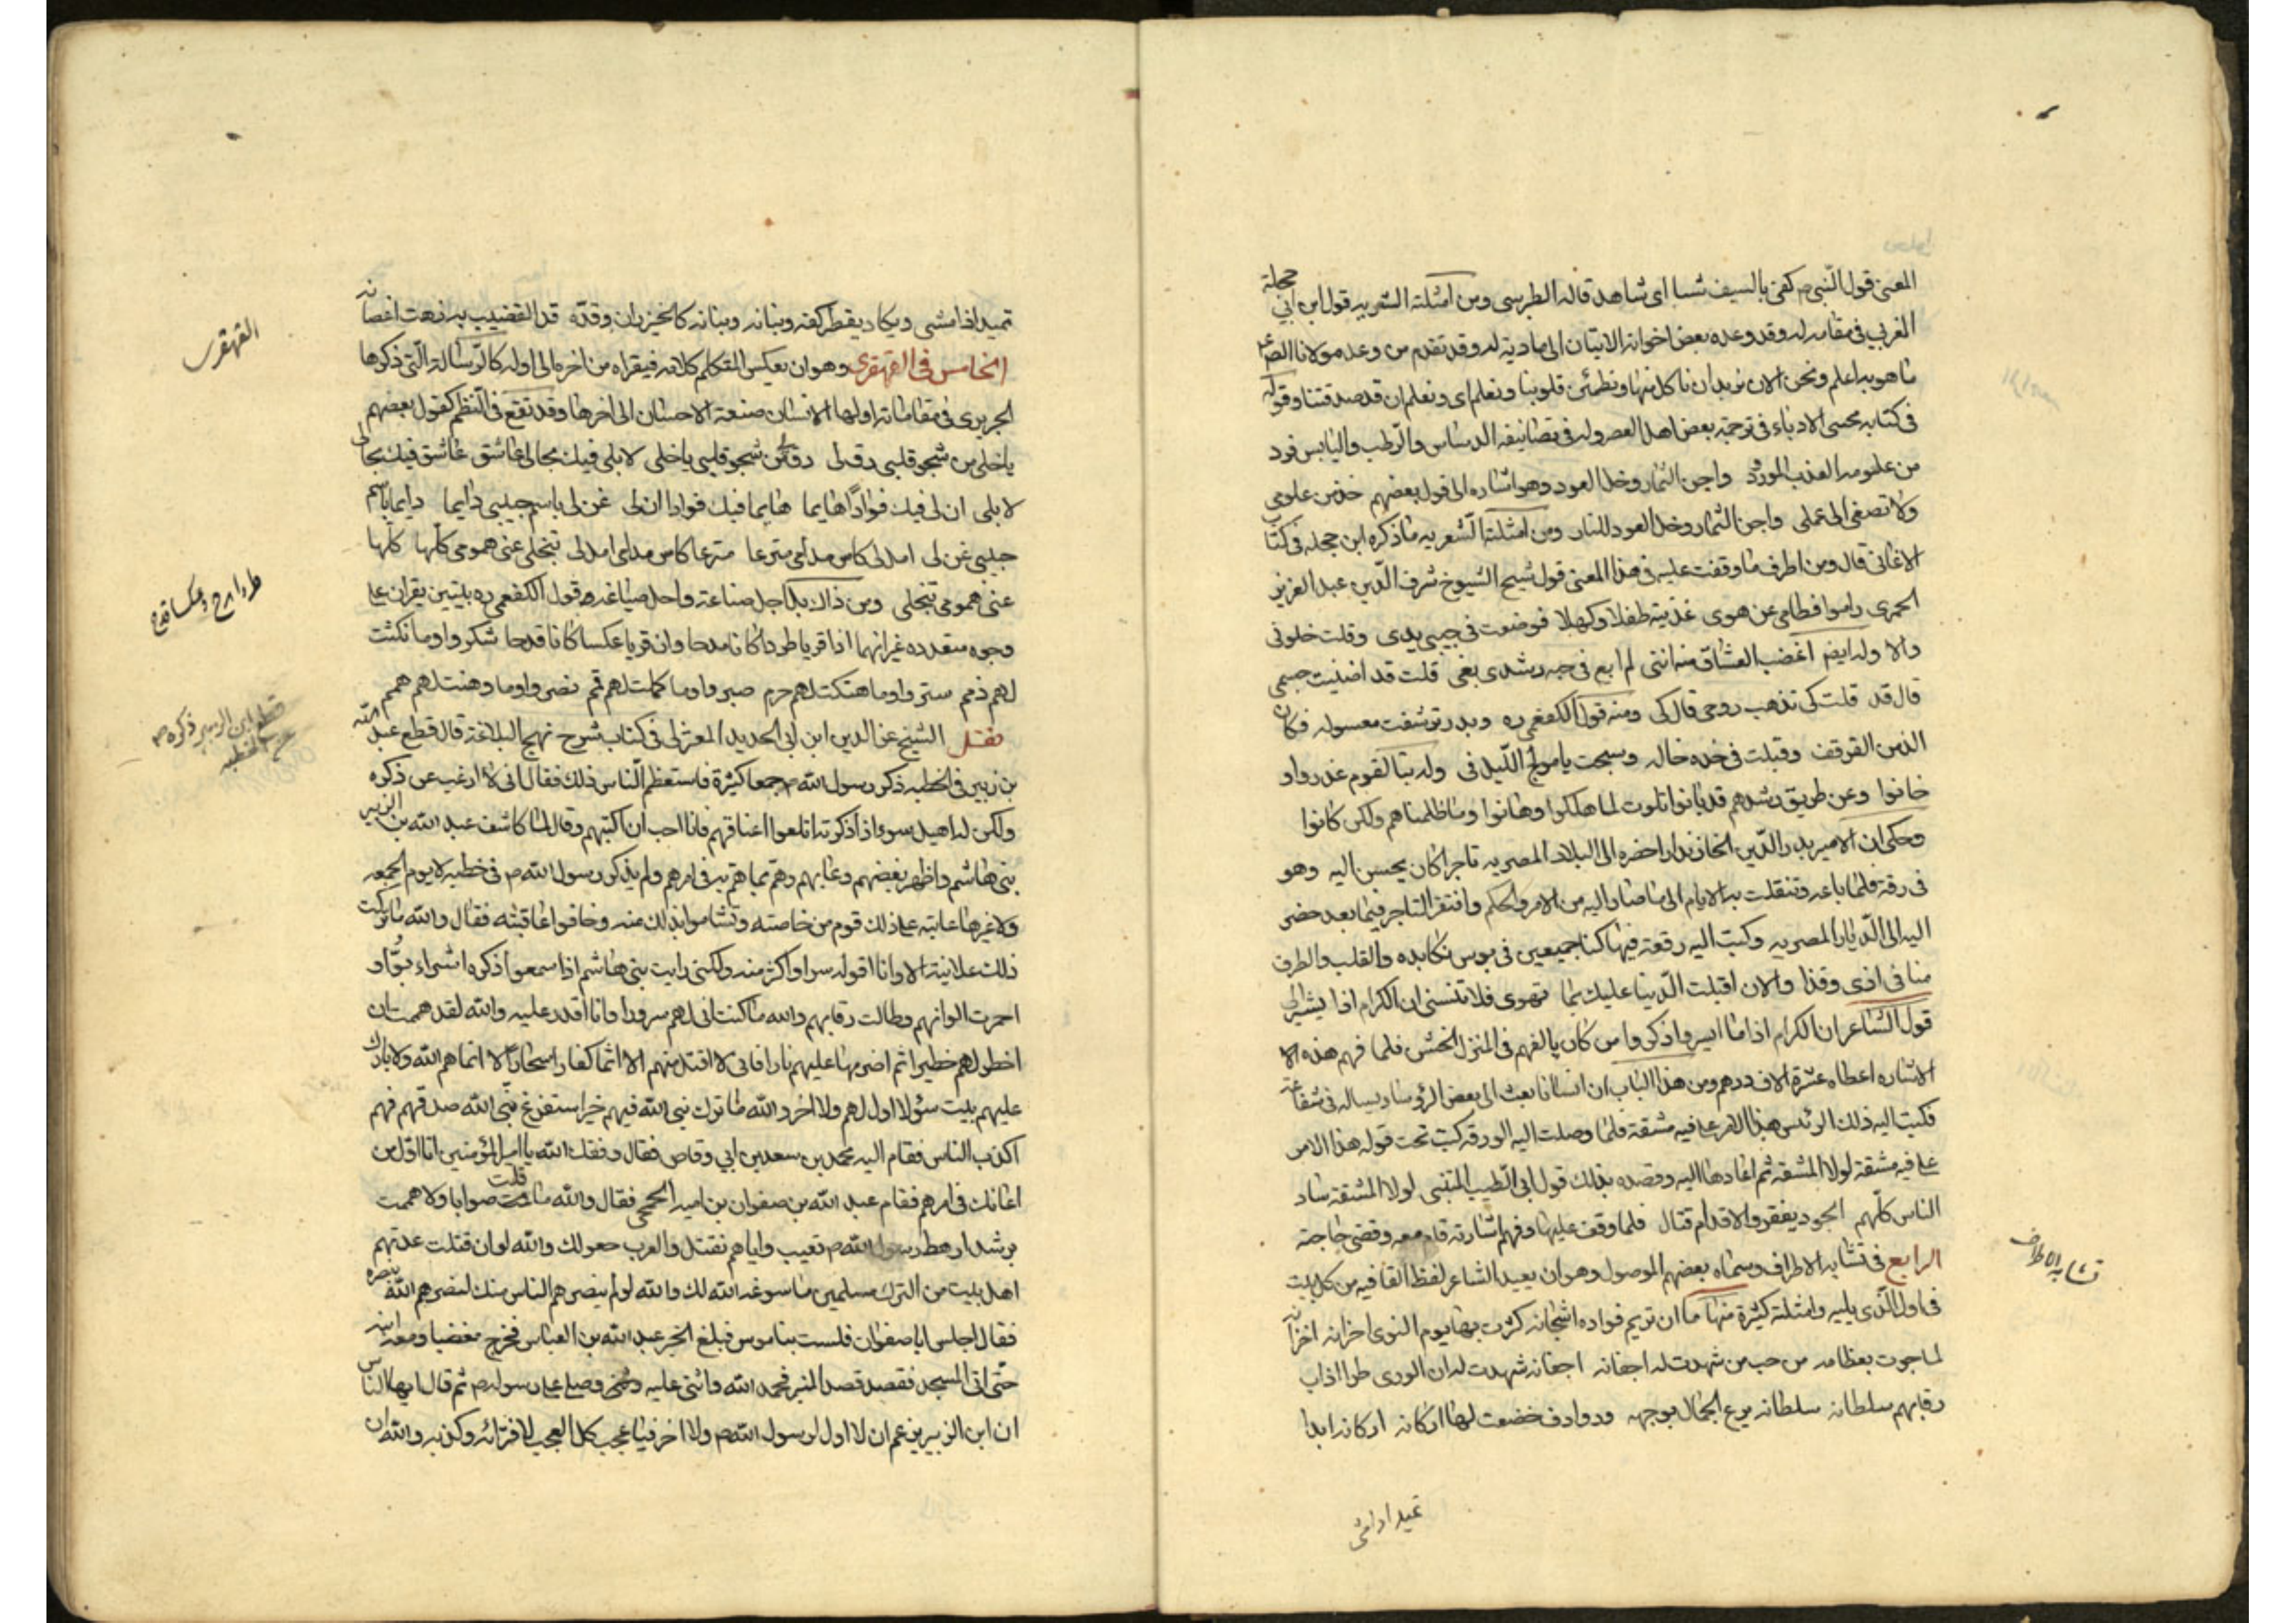 المعنى قول النبي ص كفى بالسيف شا اى شاهد قاله الطبرسى ومن امثلته الشعريه قول ابن ابي حجلة
المغربي في مقامه له وقد وعده بعض اخوانه الاتيان الى مادبة له وقد تقدم من وعد مولانا
ما هو به اعلم ونحن الان نريد ان ناكل منها وتطمئن قلوبنا ونعلم اى ونعلم ان قد صدقتنا وقوله
فى كتابه محسى الادباء فى ترجمة بعض اهل العصر وله فى تصانيفه الدساس والرطب واليابس فرد
من علومه العذب المورود واجن الثمار وخل العود وهو اشاره الى قول بعضهم خذ من علومى
ولا تصغى الى عملى واجن الثمار وخل العود للنار ومن امثلته الشعريه ما ذكره ابن حجله فى كتاب
الاغانى قال ومن اطرف ما وقفت عليه فى هذا المعنى قول شيح الشيوخ شرف الدين عبد العزيز
الحموى راموا فطامى عن هوى غذيته طفلا وكهلا فوضعت فى جيبى يدى وقلت خلونى
والا وله ايضم اغضب العشاق منه اننى لم ابع فى حبه رشدى بغى قلت قد اضنيت جسمى
قال قد قلت كى تذهب روحى قال كى ومنه قول الكفعمى ره وبدر توشفت معسوله فكان
الذ من القرقف وقبلت فى خده خاله وسبحت يا مولج الليل فى وله تبا لقوم غدروا و
خانوا وعن طريق رشدهم قد بانوا تلوت لما هلكوا وهانوا وما ظلمناهم ولكن كانوا
وحكى ان الامير بدر الدين الخازندار احضره الى البلاد المصريه تاجرا كان يحسن اليه وهو
فى رقه فلما باعه وتنقلت به الايام الى ما صار اليه من الامر والحكم وافتقر التاجر فيما بعد حضر
اليه الى الديار المصريه وكتب اليه رقعة فيها كنا جميعين فى بوس نكابده والقلب والطرف
منا فى اذى وقذا والان اقبلت الدنيا عليك بما تهوى فلا تنسنى ان الكرام اذا يشير الى
قول الشاعر ان الكرام اذا ما ايسروا ذكروا من كان يالفهم فى المنزل الخشن فلما فهم هذه الا
الاشاره اعطاه عشرة الاف درهم ومن هذا الباب ان انسانا بعث الى بعض الرؤساء يساله فى شفاعة
فكتب اليه ذلك الرئيس هذا الامر على فيه مشقة فلما وصلت اليه الورقه كتب تحت قوله هذا الامر
على فيه مشقة لولا المشقة ثم اعادها اليه وقصده بذلك قول ابى الطيب المتنبى لولا المشقة ساد
الناس كلهم الجود يفقر والاقدام قتال فلما وقف عليها وفهم اشارته قام معه وقضى حاجته
الرابع فى تشابه الاطراف وسماه بعضهم الموصول وهو ان يعيد الشاعر لفظ القافيه من كل بيت
فى اول الذى يليه وامثلته كثيرة منها ما ان تريم فواده اشجانه كثرت بها يوم النوى احزانه احزانه
لما جرت بعظامه من حب من شهدت له اجفانه اجفانه شهدت له ان الورى طرا اذاب
رقابهم سلطانه سلطانه يرع الجمال بوجهه وروادف خضعت لها اركانه اركانه ابدا
تشابه الاطراف
تميد اذا مشى
تميد اذا مشى ويكاد يقطر كفه وبنانه وبنانه كالخيزران وقده قد القضيب به زهت اغصانه
الخامس فى القهقرى وهو ان يعكس المتكلم كلامه فيقراه من اخره الى اوله كالرسالة التى ذكرها
الحريرى فى مقاماته اولها الانسان صنعة الاحسان الى اخرها وقد تقع فى النظم كقول بعضهم
يا خلى من شجو قلبى رق لى رق لى من شجو قلبى يا خلى لا بلى فيك بحالى عاشق عاشق فيك بحالى
لا بلى ان لى فيك فوادا هايما هايما فيك فوادا ان لى غن لى باسم حبيبى دايما دايما باسم
حبيبى غن لى امل لى كاس مدامى مترعا مترعا كاس مدامى امل لى تنجلى عنى همومى كلها كلها
عنى همومى تنجلى ومن ذلك قول الكفعمى ره بيتين يقران على
وجوه متعدده غير انهما اذا قريا طردا كانا مدحا وان قريا عكسا كانا قدحا شكروا وما نكثت
لهم ذمم ستروا وما هتكت لهم حرم صبروا وما كلت لهم قمم نصروا وما وهنت لهم همم
نقل الشيخ عز الدين ابن ابى الحديد المعتزلى فى كتاب شرح نهج البلاغة قال قطع عبد الله
بن زبير فى الخطبه ذكر رسول الله ص جمعا كثيرة فاستعظم الناس ذلك فقال انى لا ارغب عن ذكره
ولكن له اهيل سوء اذا ذكرته اتلعوا اعناقهم فانا احب ان اكبتهم وقال لما كاشف عبد الله بن الزبير
بنى هاشم واظهر بغضهم وعابهم وهم بما هم به فى امرهم ولم يذكر رسول الله ص فى خطبه لا يوم الجمعه
ولا غيرها عاتبه على ذلك قوم من خاصته وتشاموا بذلك منه وخافوا عاقبته فقال والله ما تركت
ذلك علانية الا وانا اقوله سرا واكثر منه ولكنى رايت بنى هاشم اذا سمعوا ذكره اشراءبوا و
احمرت الوانهم وطالت رقابهم والله ما كنت اتى لهم سرورا وانا اقدر عليه والله لقد هممت ان
اخطر لهم خطيرا ثم اضرمها عليهم نارا فانى لا اقتل منهم الا اثما كفارا سحارا لا انماهم الله ولا بارك
عليهم بيت سوء لا اول لهم ولا اخر والله ما ترك نبى الله فيهم خيرا استفرغ نبى الله صدقهم فهم
اكذب الناس فقام اليه محمد بن سعد بن ابي وقاص فقال وفقك الله يا امير المؤمنين انا اول من
اعانك فى امرهم فقام عبد الله بن صفوان بن اميه الجمحى فقال والله ما قلت صوابا ولا هممت
برشد ارهط رسول الله ص تعيب واياهم نقتل والعرب حولك والله لو ان قتلت عدتهم
اهل بيت من الترك مسلمين ما سوغه الله لك والله لو لم ينصرهم الناس منك لنصرهم الله بنصره
فقال اجلس ابا صفوان فلست بناموس فبلغ الخبر عبد الله بن العباس فخرج مغضبا ومعه ابنه
حتى اتى المسجد فقصد قصد المنبر فحمد الله واثنى عليه وصلى على رسوله ص ثم قال ايها الناس
ان ابن الزبير يزعم ان لا اول لرسول الله ص ولا اخر فيا عجب كل العجب لافترائه وكذبه والله ان
القهقرى
طردا مدح وعكسا قدح
قطع ابن الزبير ذكره ص
عن الخطبه